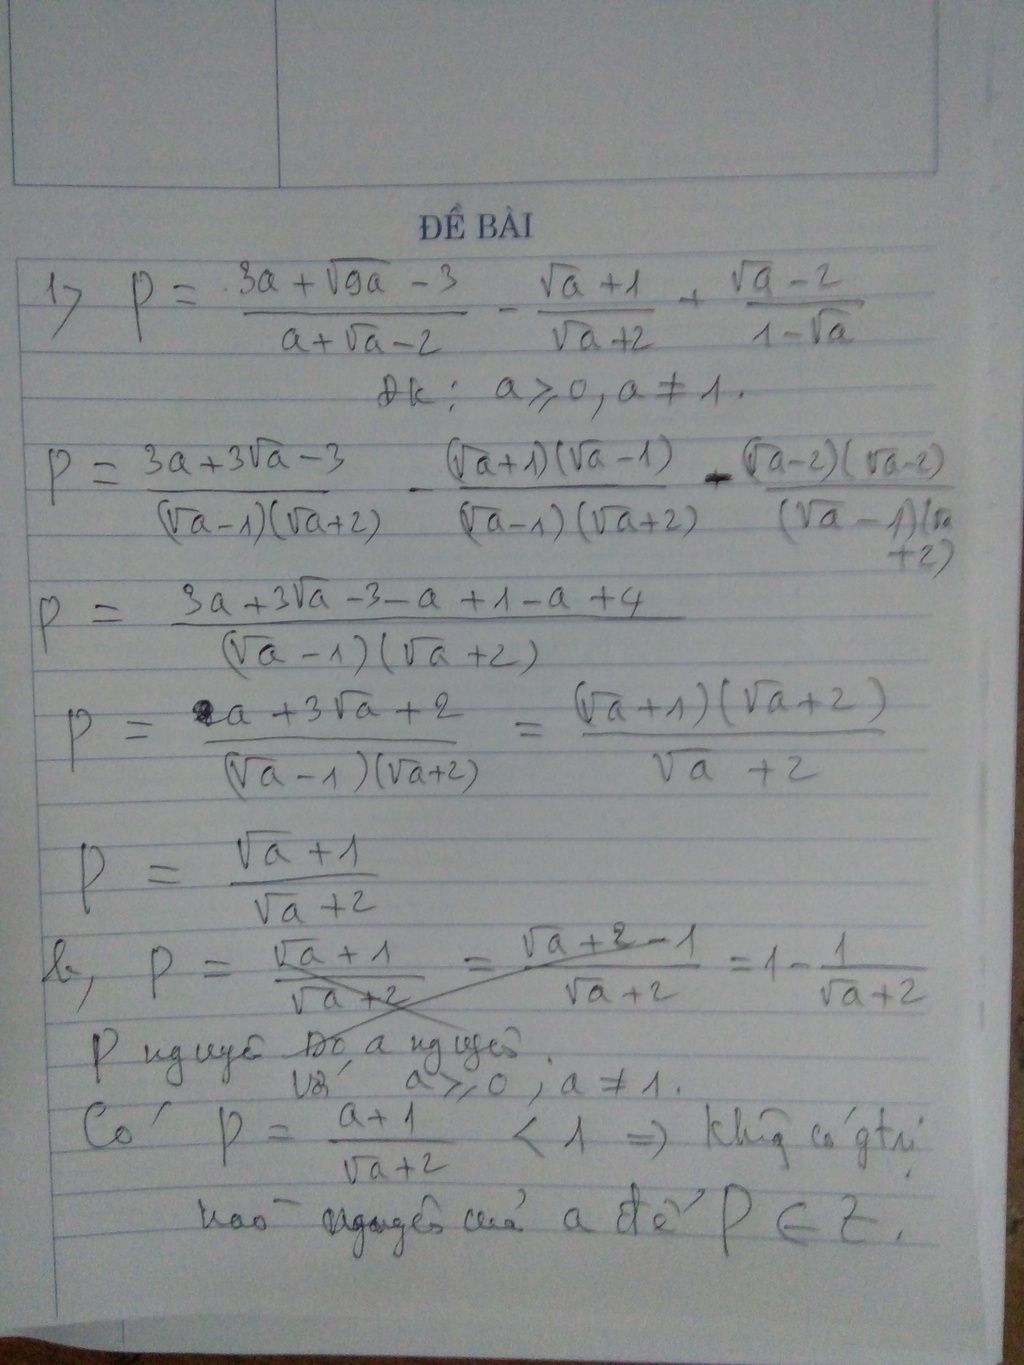 ĐỀ BÀI
1, P = (3a + √9a - 3)/(a + √a - 2) - (√a + 1)/(√a + 2) + (√a - 2)/(1 - √a)
ĐK: a ≥ 0, a ≠ 1.
P = (3a + 3√a - 3)/((√a - 1)(√a + 2)) - ((√a + 1)(√a - 1))/((√a - 1)(√a + 2)) - ((√a - 2)(√a - 2))/((√a - 1)(√a + 2))
P = (3a + 3√a - 3 - a + 1 - a + 4)/((√a - 1)(√a + 2))
P = (a + 3√a + 2)/((√a - 1)(√a + 2)) = ((√a + 1)(√a + 2))/(√a + 2)
P = (√a + 1)/(√a + 2)
b, P = (√a + 1)/(√a + 2) = (√a + 2 - 1)/(√a + 2) = 1 - 1/(√a + 2)
P nguyên Do a nguyên.
Với a ≥ 0, a ≠ 1.
Có P = (a + 1)/(√a + 2) < 1 ⇒ không có gtrị
nào nguyên của a để P ∈ Z.